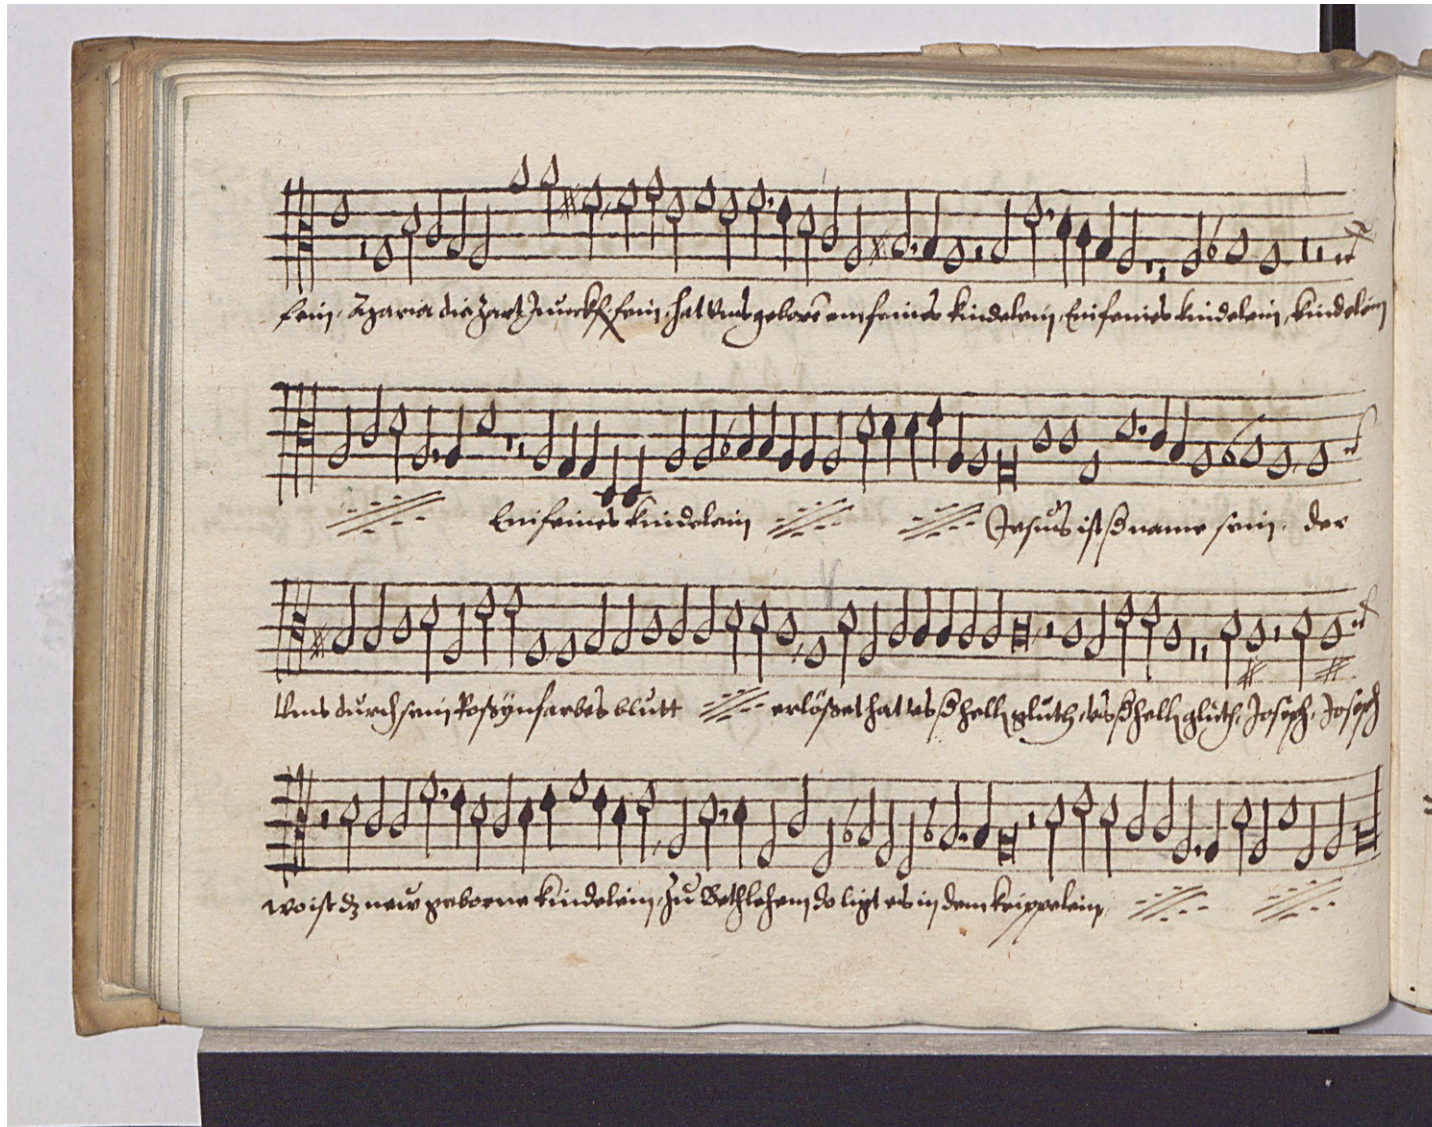 fein, Maria die zart Junckfr fein, hat uns geborē ein feines kindelein, Ein feines kindelein, kindelein
Ein feines kindelein Jesus ist ß name sein. der
Uns durch sein Roßÿnfarbes blutt erlößet hat ß hell gluth, ß hell gluth, Joseph, Joseph
wo ist dz new geborne kindelein, zu Bethlehem do ligt es in dem krippelein,